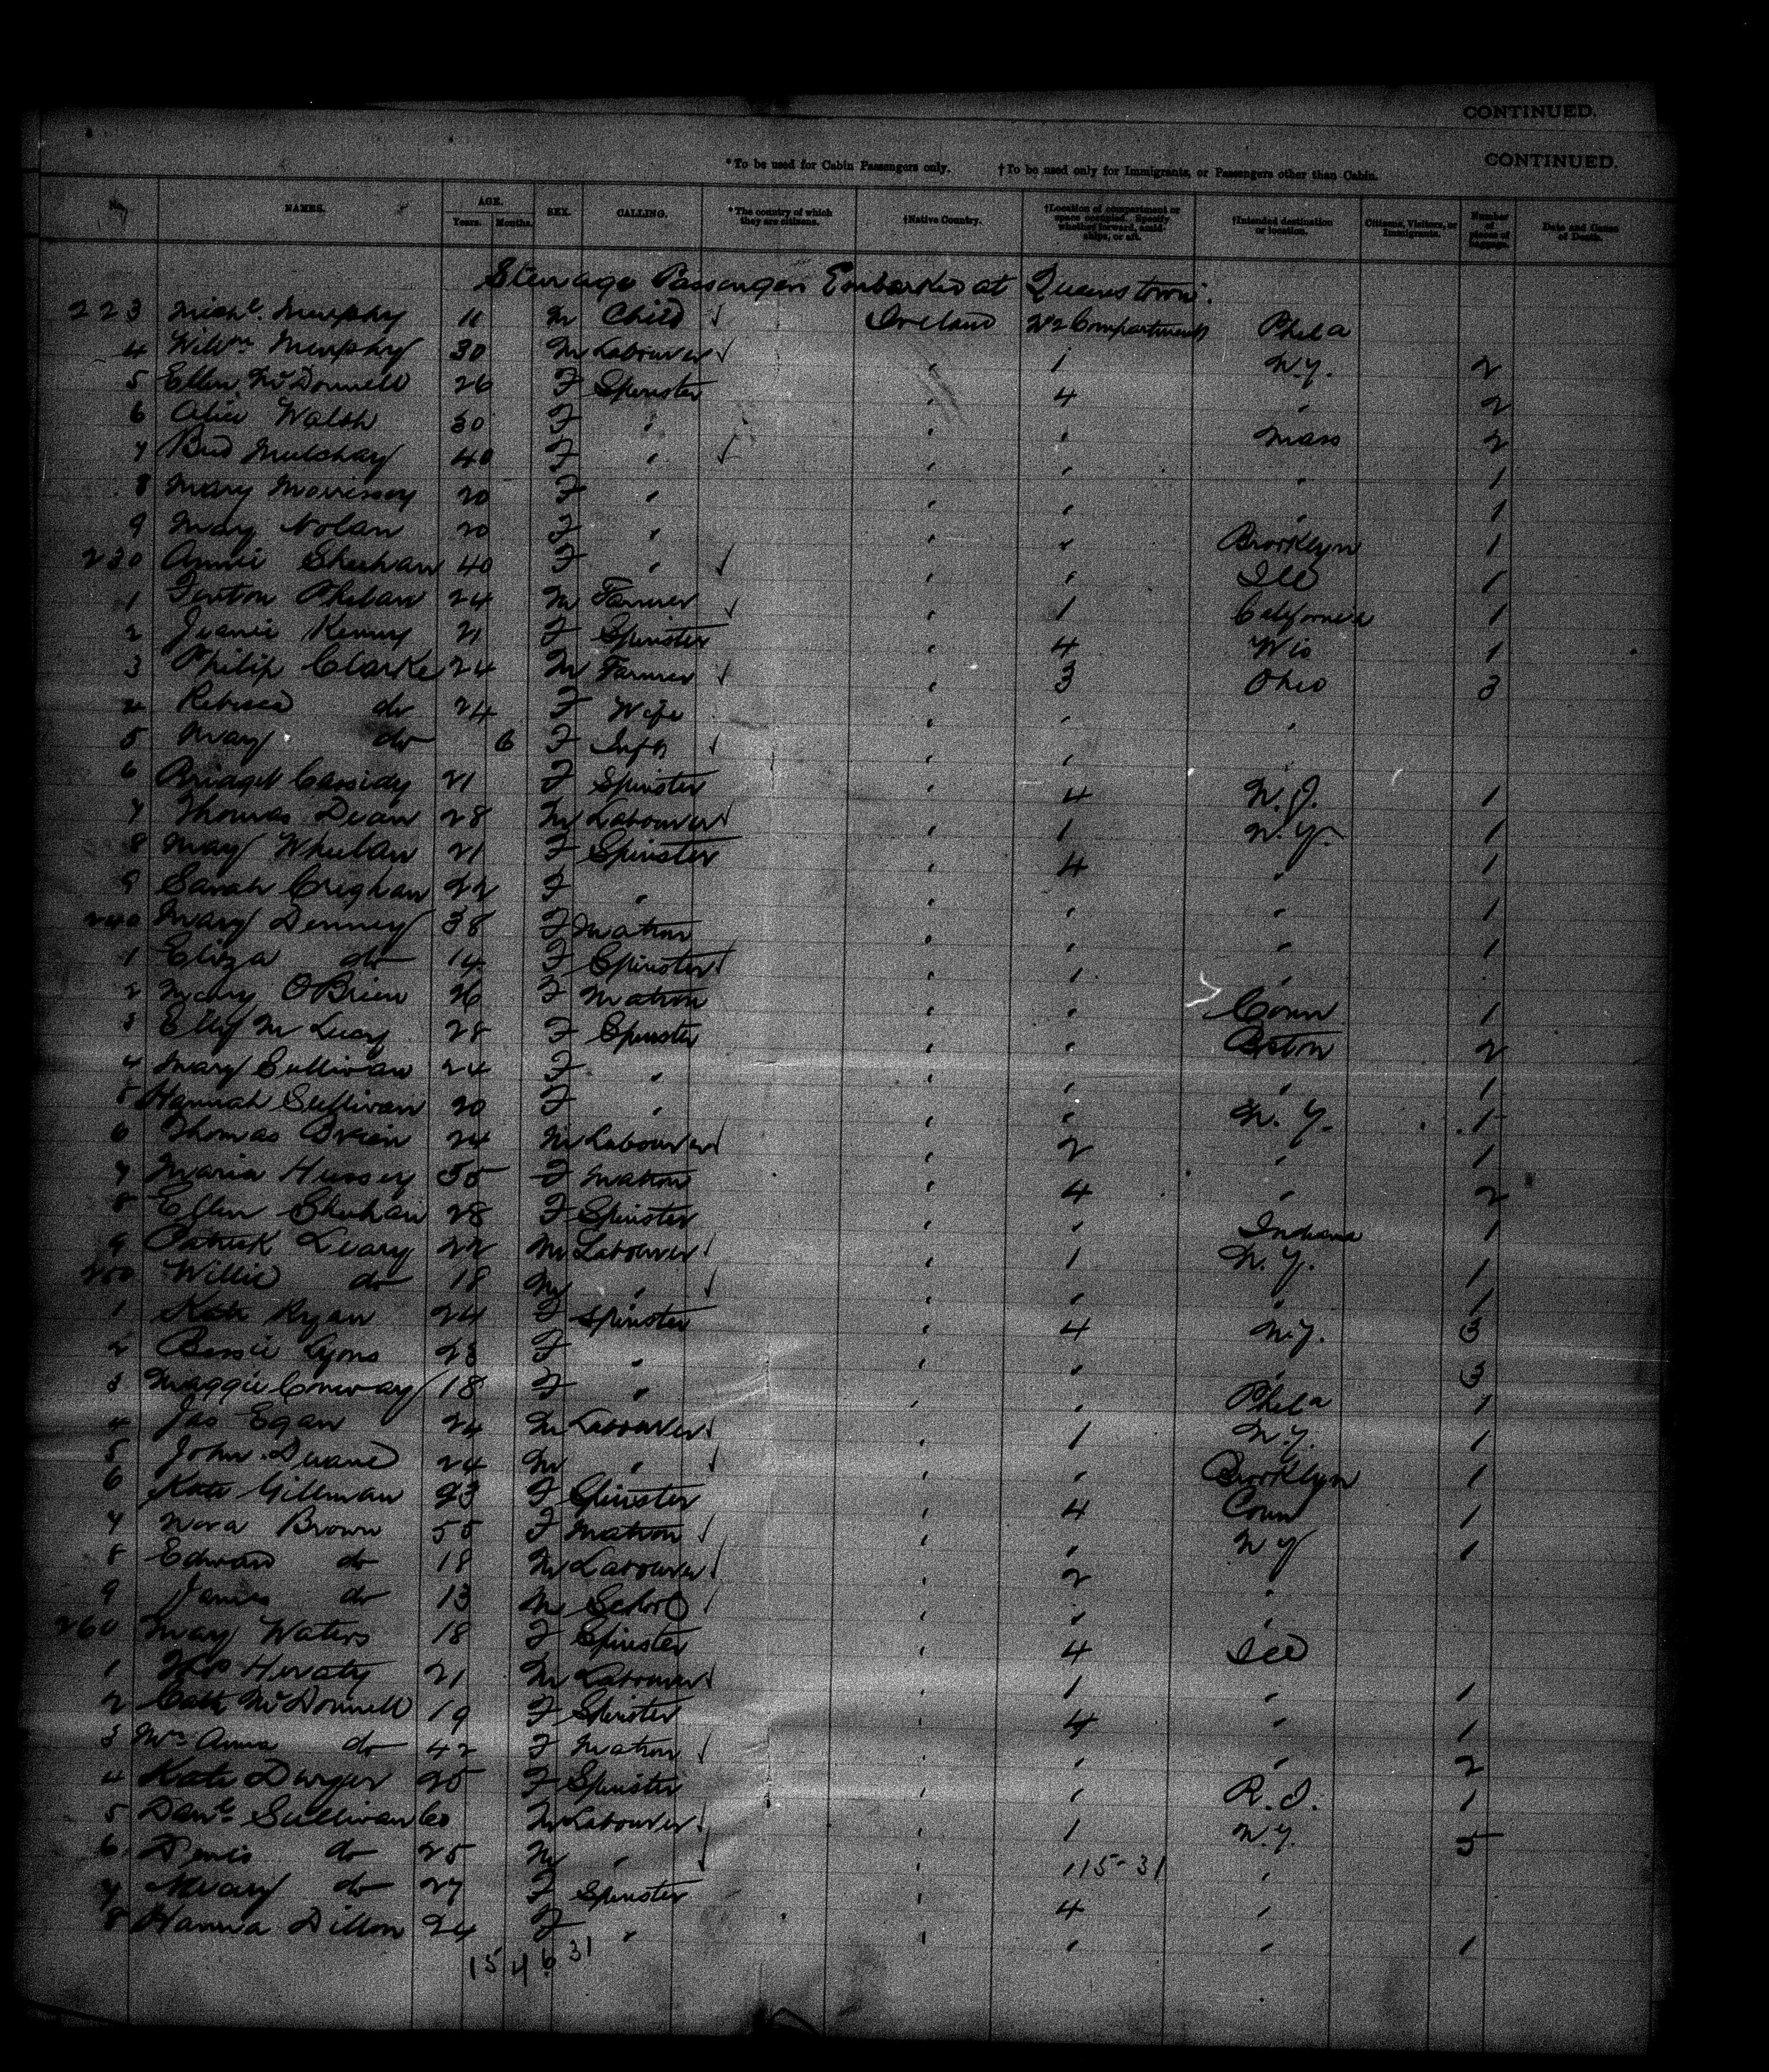 CONTINUED.
CONTINUED.
*To be used for Cabin Passengers only. †To be used only for Immigrants, or Passengers other than Cabin.
No. NAMES. AGE. Years. Months. SEX. CALLING. *The country of which they are citizens. †Native Country. †Location of compartment or space occupied. Specify whether forward, amidships, or aft. †Intended destination or location. Citizens, Visitors, or Immigrants. Number of pieces of luggage. Date and Cause of Death.
Steerage Passengers Embarked at Queenstown.
223 Michl. Murphy 11 M Child Ireland No 2 Compartment Phila
4 Willm Murphy 30 M Labourer " 1 N.Y. 2
5 Ellen McDonnell 26 F Spinster " 4 " 2
6 Alice Walsh 30 F " " " Mass 2
7 Brid Mulchay 40 F " " " " 1
8 Mary Morrissey 20 F " " " " 1
9 Mary Nolan 20 F " " " Brooklyn 1
230 Annie Sheehan 40 F " " " Ill 1
1 Finton Phelan 24 M Farmer " 1 California 1
2 Jeanie Kenny 21 F Spinster " 4 Wis 1
3 Philip Clarke 24 M Farmer " 3 Ohio 3
4 Rebecca do 24 F Wife " " "
5 May do 6 F Inft " "
6 Bridget Cassidy 21 F Spinster " 4 N.J. 1
7 Thomas Dean 28 M Labourer " 1 N.Y. 1
8 May Whelan 21 F Spinster " 4 " 1
9 Sarah Creghan 22 F " " " " 1
240 Mary Denney 38 F Matron " " " 1
1 Eliza do 14 F Spinster " " "
2 Mary OBrien 26 F Matron " " Conn 1
3 Elly M Leary 28 F Spinster " " Boston 2
4 Mary Sullivan 24 F " " " " 1
5 Hannah Sullivan 20 F " " " N.Y. 1
6 Thomas Brien 24 M Labourer " 2 " 1
7 Maria Hussey 55 F Matron " 4 " 2
8 Ellen Sheehan 28 F Spinster " " Indiana 1
9 Patrick Leary 22 M Labourer " 1 N.Y. 1
250 Willie do 18 M " " " " 1
1 Kate Ryan 24 F Spinster " 4 N.Y. 3
2 Bessie Lyons 23 F " " " " 3
3 Maggie Conway 18 F " " " Phila 1
4 Jas Egan 24 M Labourer " 1 N.Y. 1
5 John Duane 24 M " " " Brooklyn 1
6 Kate Gillman 23 F Spinster " 4 Conn 1
7 Nora Brown 55 F Matron " " NY 1
8 Edward do 18 M Labourer " 2 "
9 James do 13 M School " " "
260 May Waters 18 F Spinster " 4 Ill
1 Heraty 21 M Labourer " 1 " 1
2 Cath McDonnell 19 F Spinster " 4 " 1
3 Mrs Anna do 42 F Matron " " " 2
4 Kate Dwyer 25 F Spinster " " R.I. 1
5 Danl. Sullivan 60 M Labourer " 1 N.Y. 5
6 Denis do 25 M " " " 15-31 "
7 Mary do 27 F Spinster " 4 "
8 Hanna Dillon 24 F " " " " 1
15 4 6 31